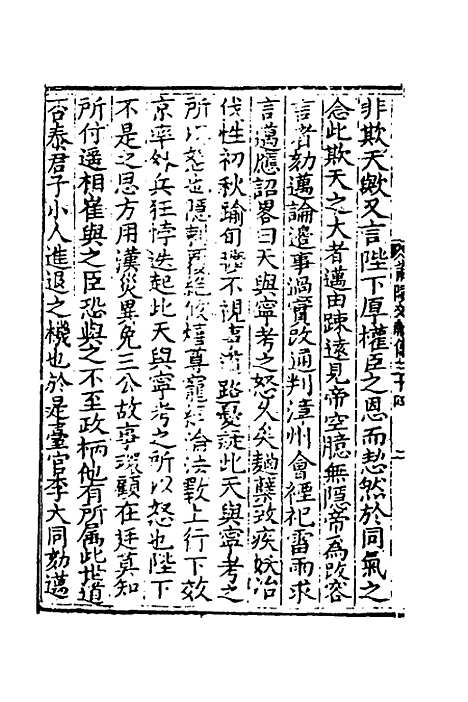 非欺天歟又言陛下厚權臣之恩而恝然於同氣之
念此欺天之大者邁由疎遠見帝空臆無隠帝為改容
言者劾邁論邉事過實改通判漳州會禋祀雷雨求
言邁應詔畧曰天與寧考之怒久矣麯蘖致疾妖冶
伐性初秋踰旬曠不視事道路憂疑此天與寧考之
所以怒也隠刺覆絶攸熺尊寵綱淪法斁上行下效
京率外兵狂悖迭起此天與寧考之所以怒也陛下
不是之思方用漢災異免三公故事環顧在廷莫知
所付遥相崔與之臣恐與之不至政柄他有所属此世道
否泰君子小人進退之機也於是臺官李大同劾邁